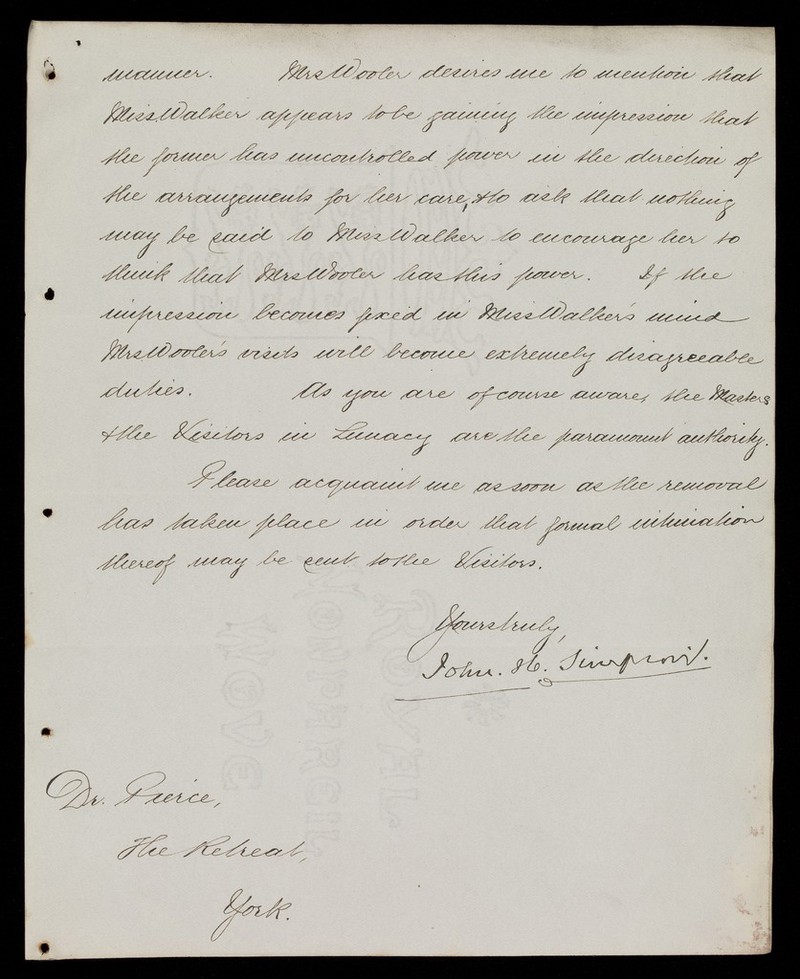 manner. Mrs Wooler desires me to mention that
Miss Walker appears to be gaining the impression that
the former has uncontrolled power in the direction of
the arrangements for her care, & to ask that nothing
may be said to Miss Walker to encourage her to
think that Mrs Wooler has this power. If the
impression becomes fixed in Miss Walker's mind
Mrs Wooler's visits will become extremely disagreeable
duties. As you are of course aware, the Masters
& the Visitors in Lunacy are the paramount authority.
Please acquaint me as soon as the removal
has taken place in order that formal intimation
thereof may be sent to the Visitors.
Yours truly,
John. H. Simpson.
Dr. Pierce,
The Retreat,
York.
ROYAL
NONPAREIL
WOVE